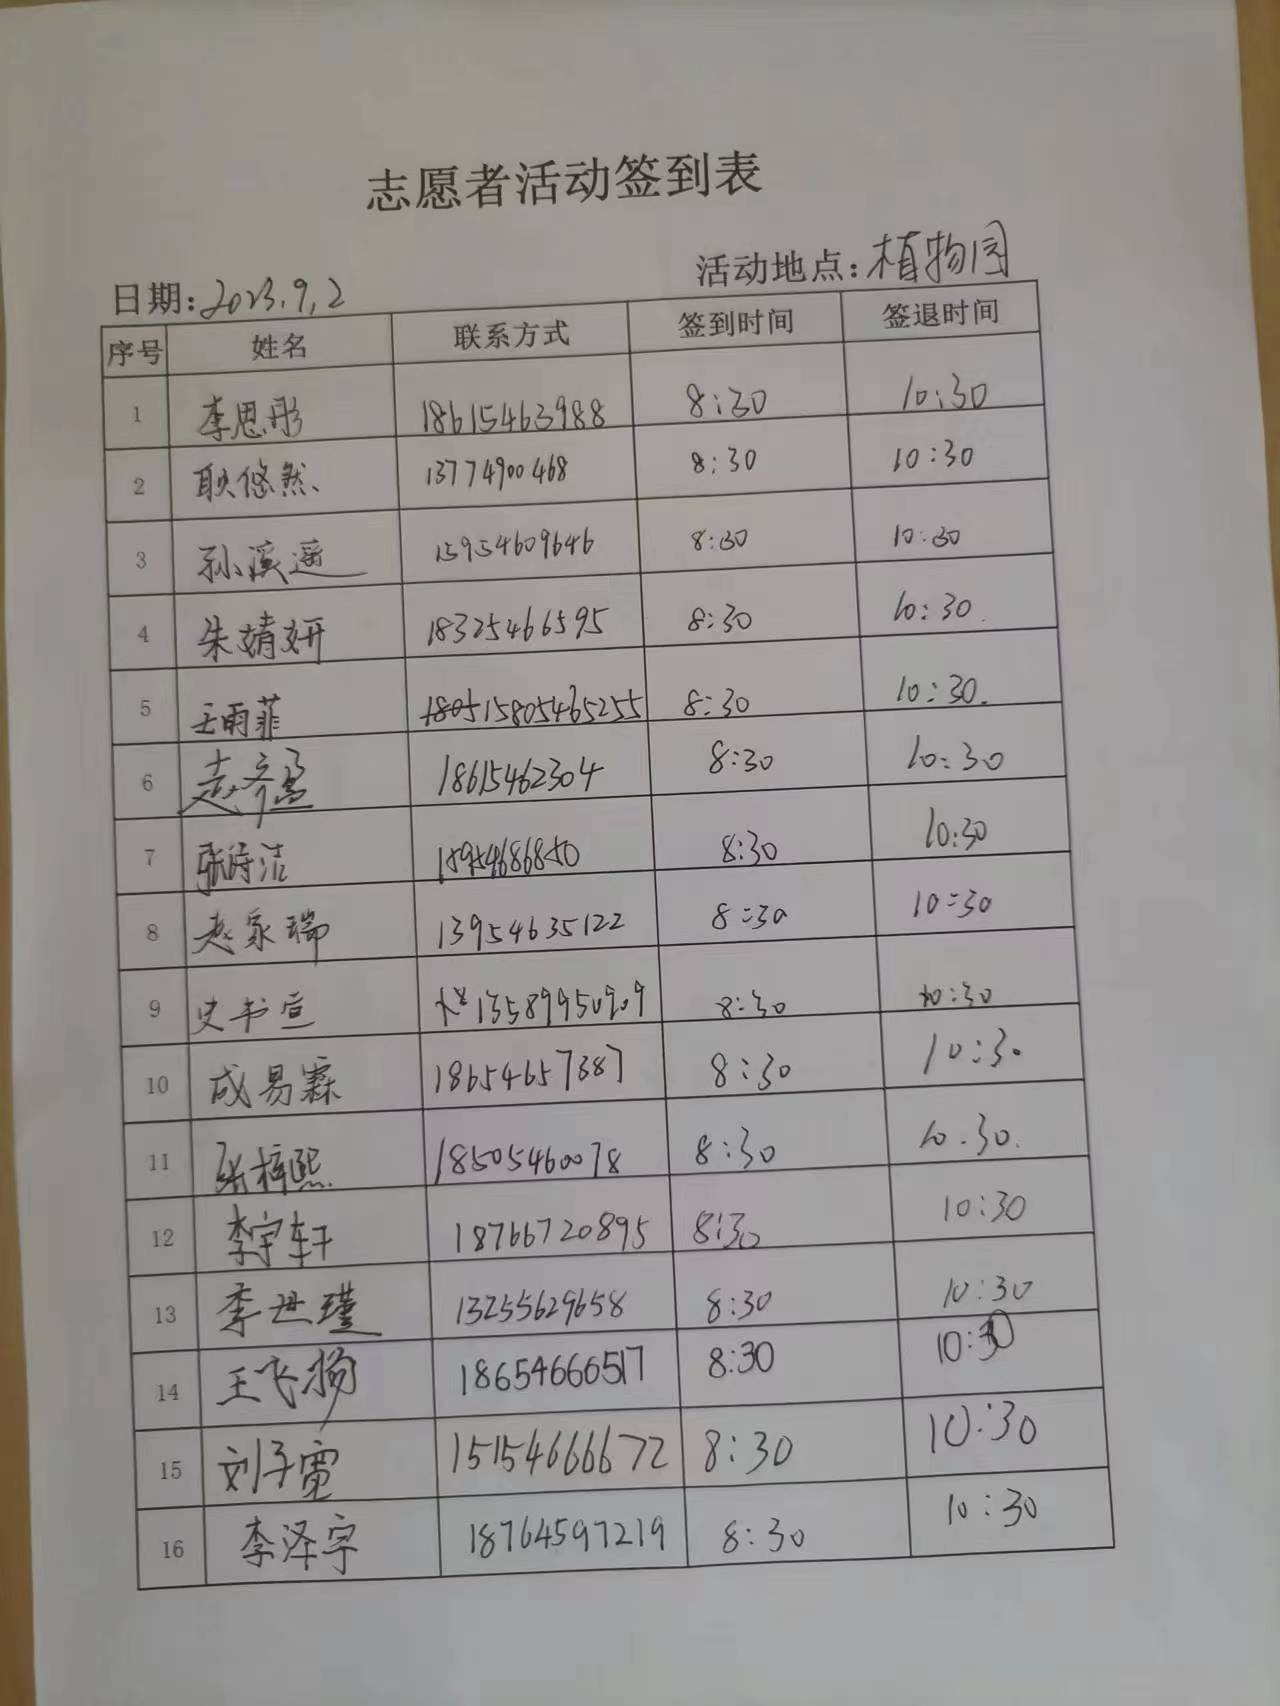 志愿者活动签到表
日期:2023.9.2 活动地点:植物园
序号 姓名 联系方式 签到时间 签退时间
1 李思彤 18615463988 8:30 10:30
2 耿悠然 13774900468 8:30 10:30
3 孙溪遥 15954609646 8:30 10:30
4 朱婧妍 18325466595 8:30 10:30.
5 王雨菲 15805465255 8:30 10:30.
6 18615462304 8:30 10:30
7 张诗洁 15954686850 8:30 10:30
8 赵家瑞 13954635122 8:30 10:30
9 史书宣 13589950909 8:30 10:30
10 成易霖 18654657387 8:30 10:30
11 张梓熙 18505460078 8:30 10.30.
12 李宇轩 18766720895 8:30 10:30
13 李世瑾 13255629658 8:30 10:30
14 王飞扬 18654666517 8:30 10:30
15 刘子 15154666672 8:30 10:30
16 李泽宇 18764597219 8:30 10:30